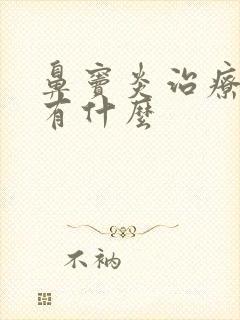 鼻窦炎治療
有什麼
不衲